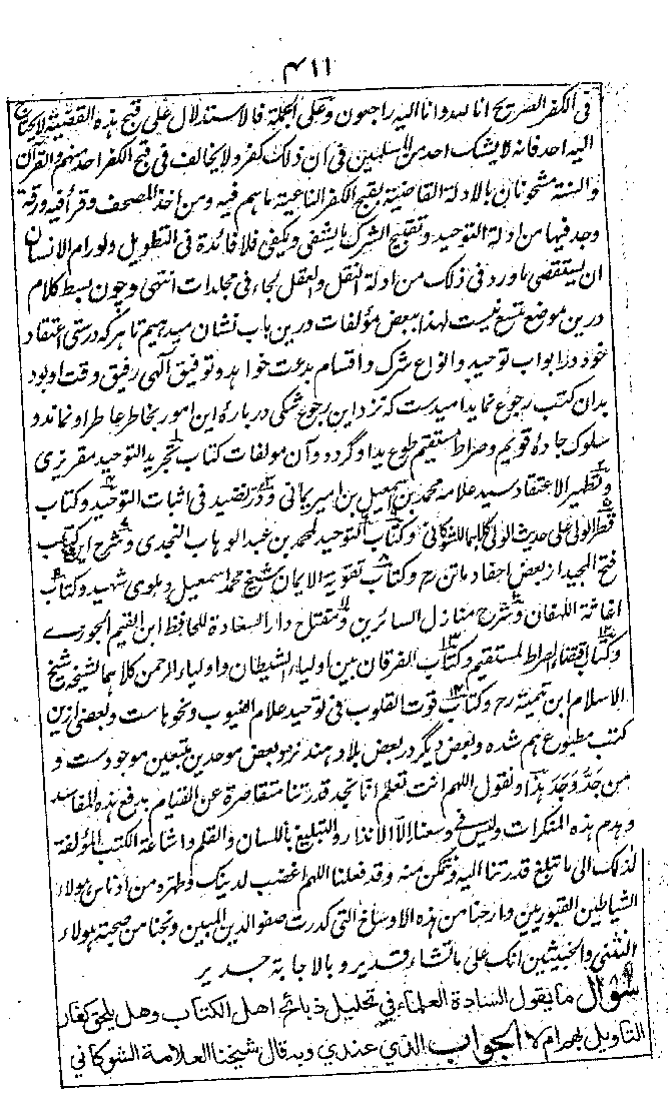 ۴۱۱
فی الکفر الصریح انا لله وانا الیه راجعون وعلی الجملة فالاستدلال علی قبح هذه القضیة لایحتاج
الیه احد فانه لا یشک احد من المسلمین فی ان ذلک کفر ولا یخالف فی قبح الکفر احد منهم والقرآن
والسنة مشحونان بالادلة القاضیة بقبح الکفر الناعیة ما هم فیه ومن اخذ المصحف وقرأ فیه ورقة
وجد فیها من ادلة التوحید وتقبیح الشرک ما یشفی ویکفی فلا فائدة فی التطویل ولو رام الانسان
ان یستقصی ما ورد فی ذلک من ادلة النقل والعقل لجاء فی مجلدات انتهی وچون بسط کلام
درین موضع متسع نیست لهذا بعض مؤلفات درین باب نشان میدهیم تا هر که درستی اعتقاد
خود در ابواب توحید وانواع شرک واقسام بدعت خواهد وتوفیق الٰهی رفیق وقت او بود
بدان کتب رجوع نماید امیدست که نزد این رجوع شکی در بارهٔ این امور بخاطر عاطر او نماند و
سلوک جادهٔ قویم وصراط مستقیم طوع ید او گردد وآن مولفات کتاب تجرید التوحید مقریزی
وتطهیر الاعتقاد سید علامه محمد بن اسمعیل بن امیر یمانی ودر نضید فی اثبات التوحید وکتاب
قطر الولی علی حدیث الولی کلاهما للشوکانی وکتاب التوحید لمحمد بن عبد الوهاب النجدی وشرح این کتب
فتح المجید از بعض احفاد ماتن رح وکتاب تقویة الایمان شیخ محمد اسمعیل دهلوی شهید وکتاب
اغاثة اللهفان وشرح منازل السائرین ومفتاح دار السعادة للحافظ ابن القیم الجوزے
وکتاب اقتضاء الصراط المستقیم وکتاب الفرقان بین اولیاء الشیطان واولیاء الرحمن کلاهما لشیخه شیخ
الاسلام ابن تیمیة رح وکتاب قوت القلوب فی توحید علام الغیوب ونحوهاست وبعضی ازین
کتب مطبوع هم شده وبعض دیگر در بعض بلاد هند نزد بعض موحدین متبعین موجودست و
من جَدَّ وَجَدَ هذا ونقول اللهم انت تعلم انا نجد قدرتنا متقاصرة عن القیام بدفع هذه المفاسد
وهدم هذه المنکرات ولیس فے وسعنا الا الانذار والتبلیغ باللسان والقلم واشاعة الکتب المؤلفة
لذلک الی ما تبلغ قدرتنا الیه ونتمکن منه وقد فعلنا اللهم اغضب لدینک وطهره من ادناس هولاء
الشیاطین القبوریین وارحنا من هذه الاوساخ التی کدرت صفو الدین المبین ونجنا من صحبة هولاء
والخبیثین انک علی ما تشاء قدیر وبالاجابة جدیر
سؤال ما یقول السادة العلماء فی تحلیل ذبائح اهل الکتاب وهل یلحق کفار
التاویل بهم ام لا الجواب الذی عندی وبه قال شیخنا العلامة الشوکانی